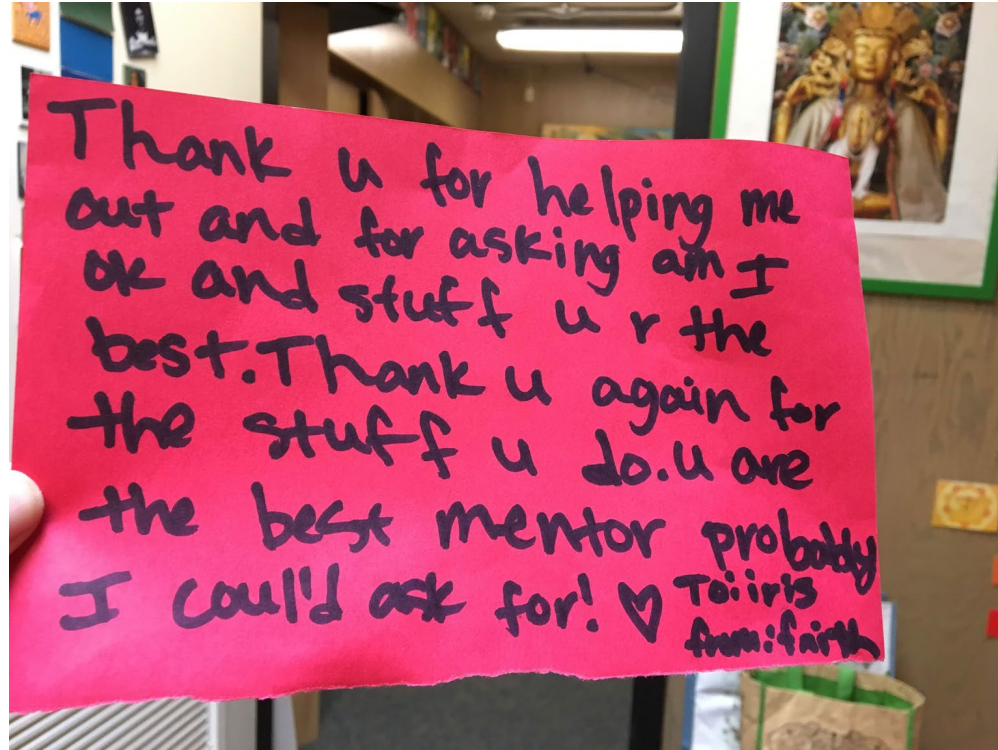 Thank u for helping me
out and for asking am I
ok and stuff u r the
best. Thank u again for
the stuff u do. u are
the best mentor probably
I coul'd ask for! ♡ To: iris
from: